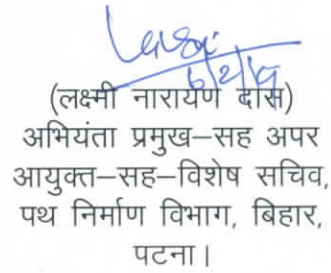 6/2/19
(लक्ष्मी नारायण दास)
अभियंता प्रमुख–सह अपर
आयुक्त–सह–विशेष सचिव,
पथ निर्माण विभाग, बिहार,
पटना।